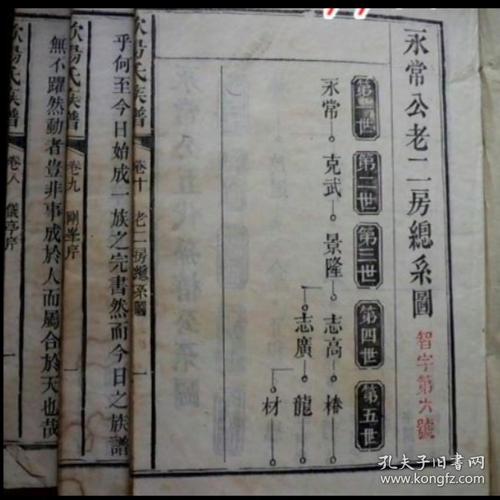 永常公老二房總系圖
智字第六號
第一世
第二世
第三世
第四世
第五世
永常 克武 景隆 志高 椿
志廣 龍
材
族譜 卷十 老二房總系圖 一
乎何至今日始成一族之完書然而今日之族譜
歐陽氏族譜 卷九 剛峯序 一
無不躍然動者豈非事成於人而屬合於天也哉
歐陽氏族譜 卷八 儀亭序 一
孔夫子旧书网
www.kongfz.com